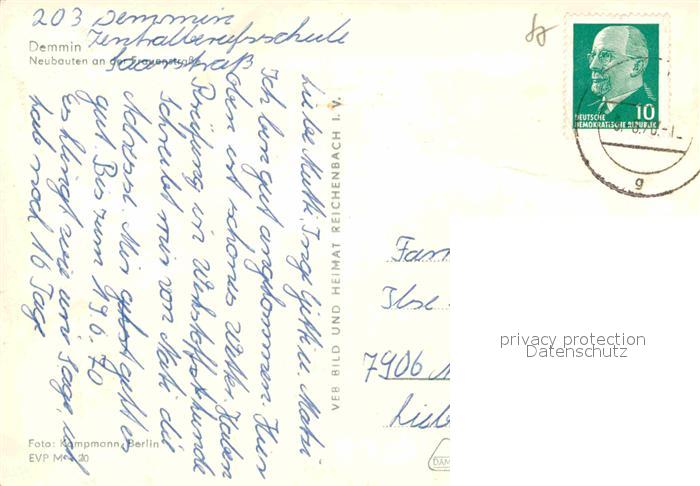 203 Demmin
Zentralberufsschule
Saarstraß
Demmin
Neubauten an der Frauenstraße
Liebe Mutti, Inge, Güti u. Manu
Ich bin gut angekommen. Hier
oben ist schönes Wetter. Haben
Prüfung in Werkstoffkunde
Schreibt mir von Mati die
Adresse. Mir gehts geht es
gut. Bis zum 19.6.70
Es klingt wie eure Tage, ich
hab noch 16 Tage
Foto: Kampmann, Berlin
EVP M -.20
VEB BILD UND HEIMAT REICHENBACH I. V.
10
DEUTSCHE
DEMOKRATISCHE REPUBLIK
g
Fam
Ilse
7906
Lieb
privacy protection
Datenschutz